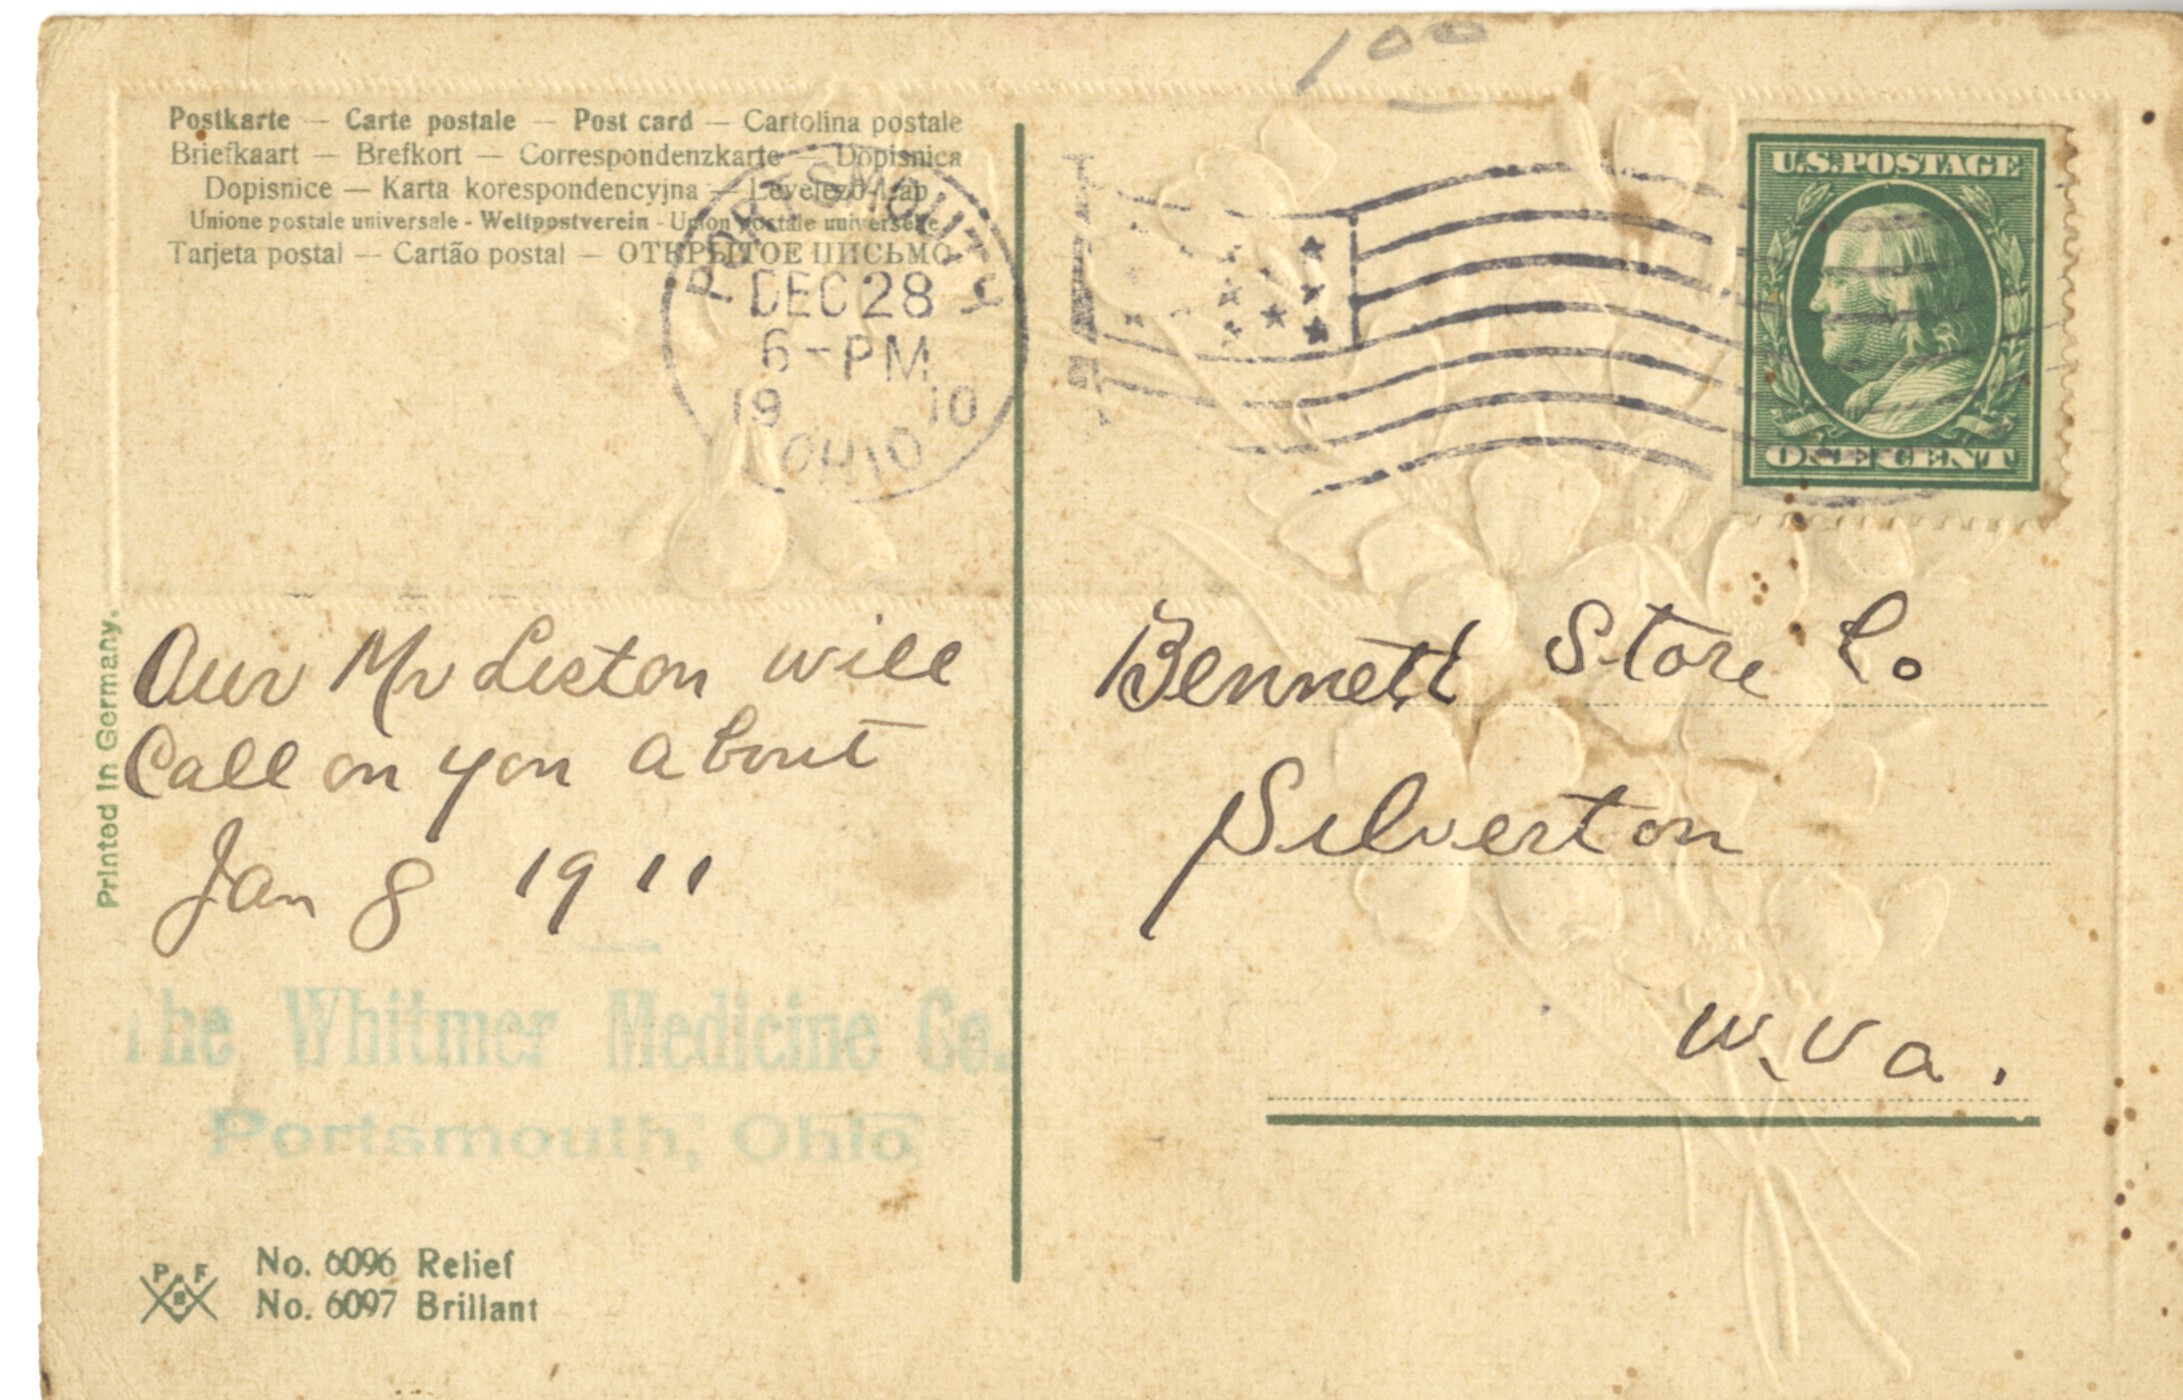 100
Postkarte — Carte postale — Post card — Cartolina postale
Briefkaart — Brefkort — Correspondenzkarte — Dopisnica
Dopisnice — Karta korespondencyjna — Levelező-Lap
Unione postale universale - Weltpostverein - Union postale universelle
Tarjeta postal — Cartão postal — ОТКРЫТОЕ ПИСЬМО
PORTSMOUTH
DEC 28
6-PM
19 10
OHIO
U.S. POSTAGE
ONE CENT
Printed in Germany.
Our Mr Liston will
Call on you about
Jan 8 1911
The Whitmer Medicine Co.,
Portsmouth, Ohio
P F B
No. 6096 Relief
No. 6097 Brillant
Bennett Store Co
Silverton
W. Va.